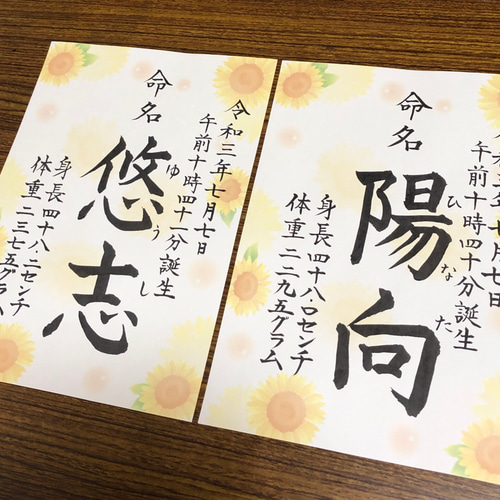 令和三年七月七日
午前十時四十一分誕生
命名
悠志
ゆうし
身長四十八・二センチ
体重二三七五グラム
和三年七月七日
午前十時四十分誕生
命名
陽向
ひなた
身長四十八・〇センチ
体重二二九五グラム